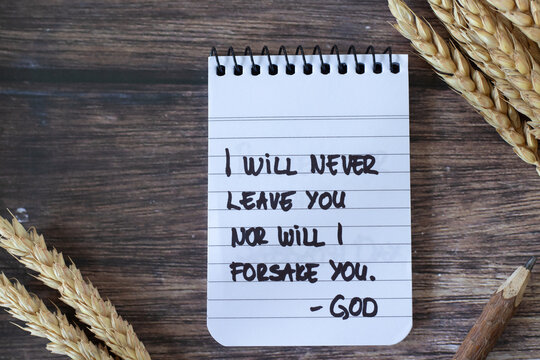 I WILL NEVER
LEAVE YOU
NOR WILL I
FORSAKE YOU.
- GOD